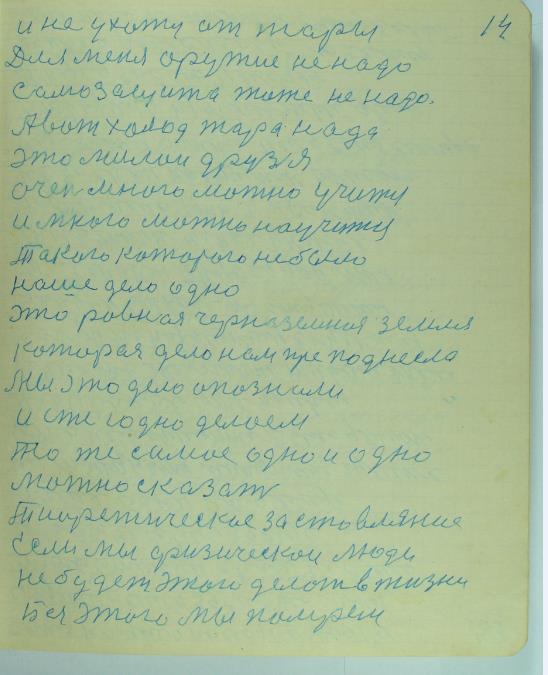 14
и не ухожу от жары
Для меня оружие ненадо
самозащита тоже не надо.
А вот холод жара нада
это милои друзя
очен много можно учит
и много можно научит
Такого которого небыло
наше дело одно
это ровная черназемная земля
которая дело нам преподнесла
Мы это дело опознали
и одно делаем
То же самое одно и одно
можно сказат
Тиоретическое заставляние
Если мы физическои люди
небудет этого делат в жизни
Без этого мы помрем